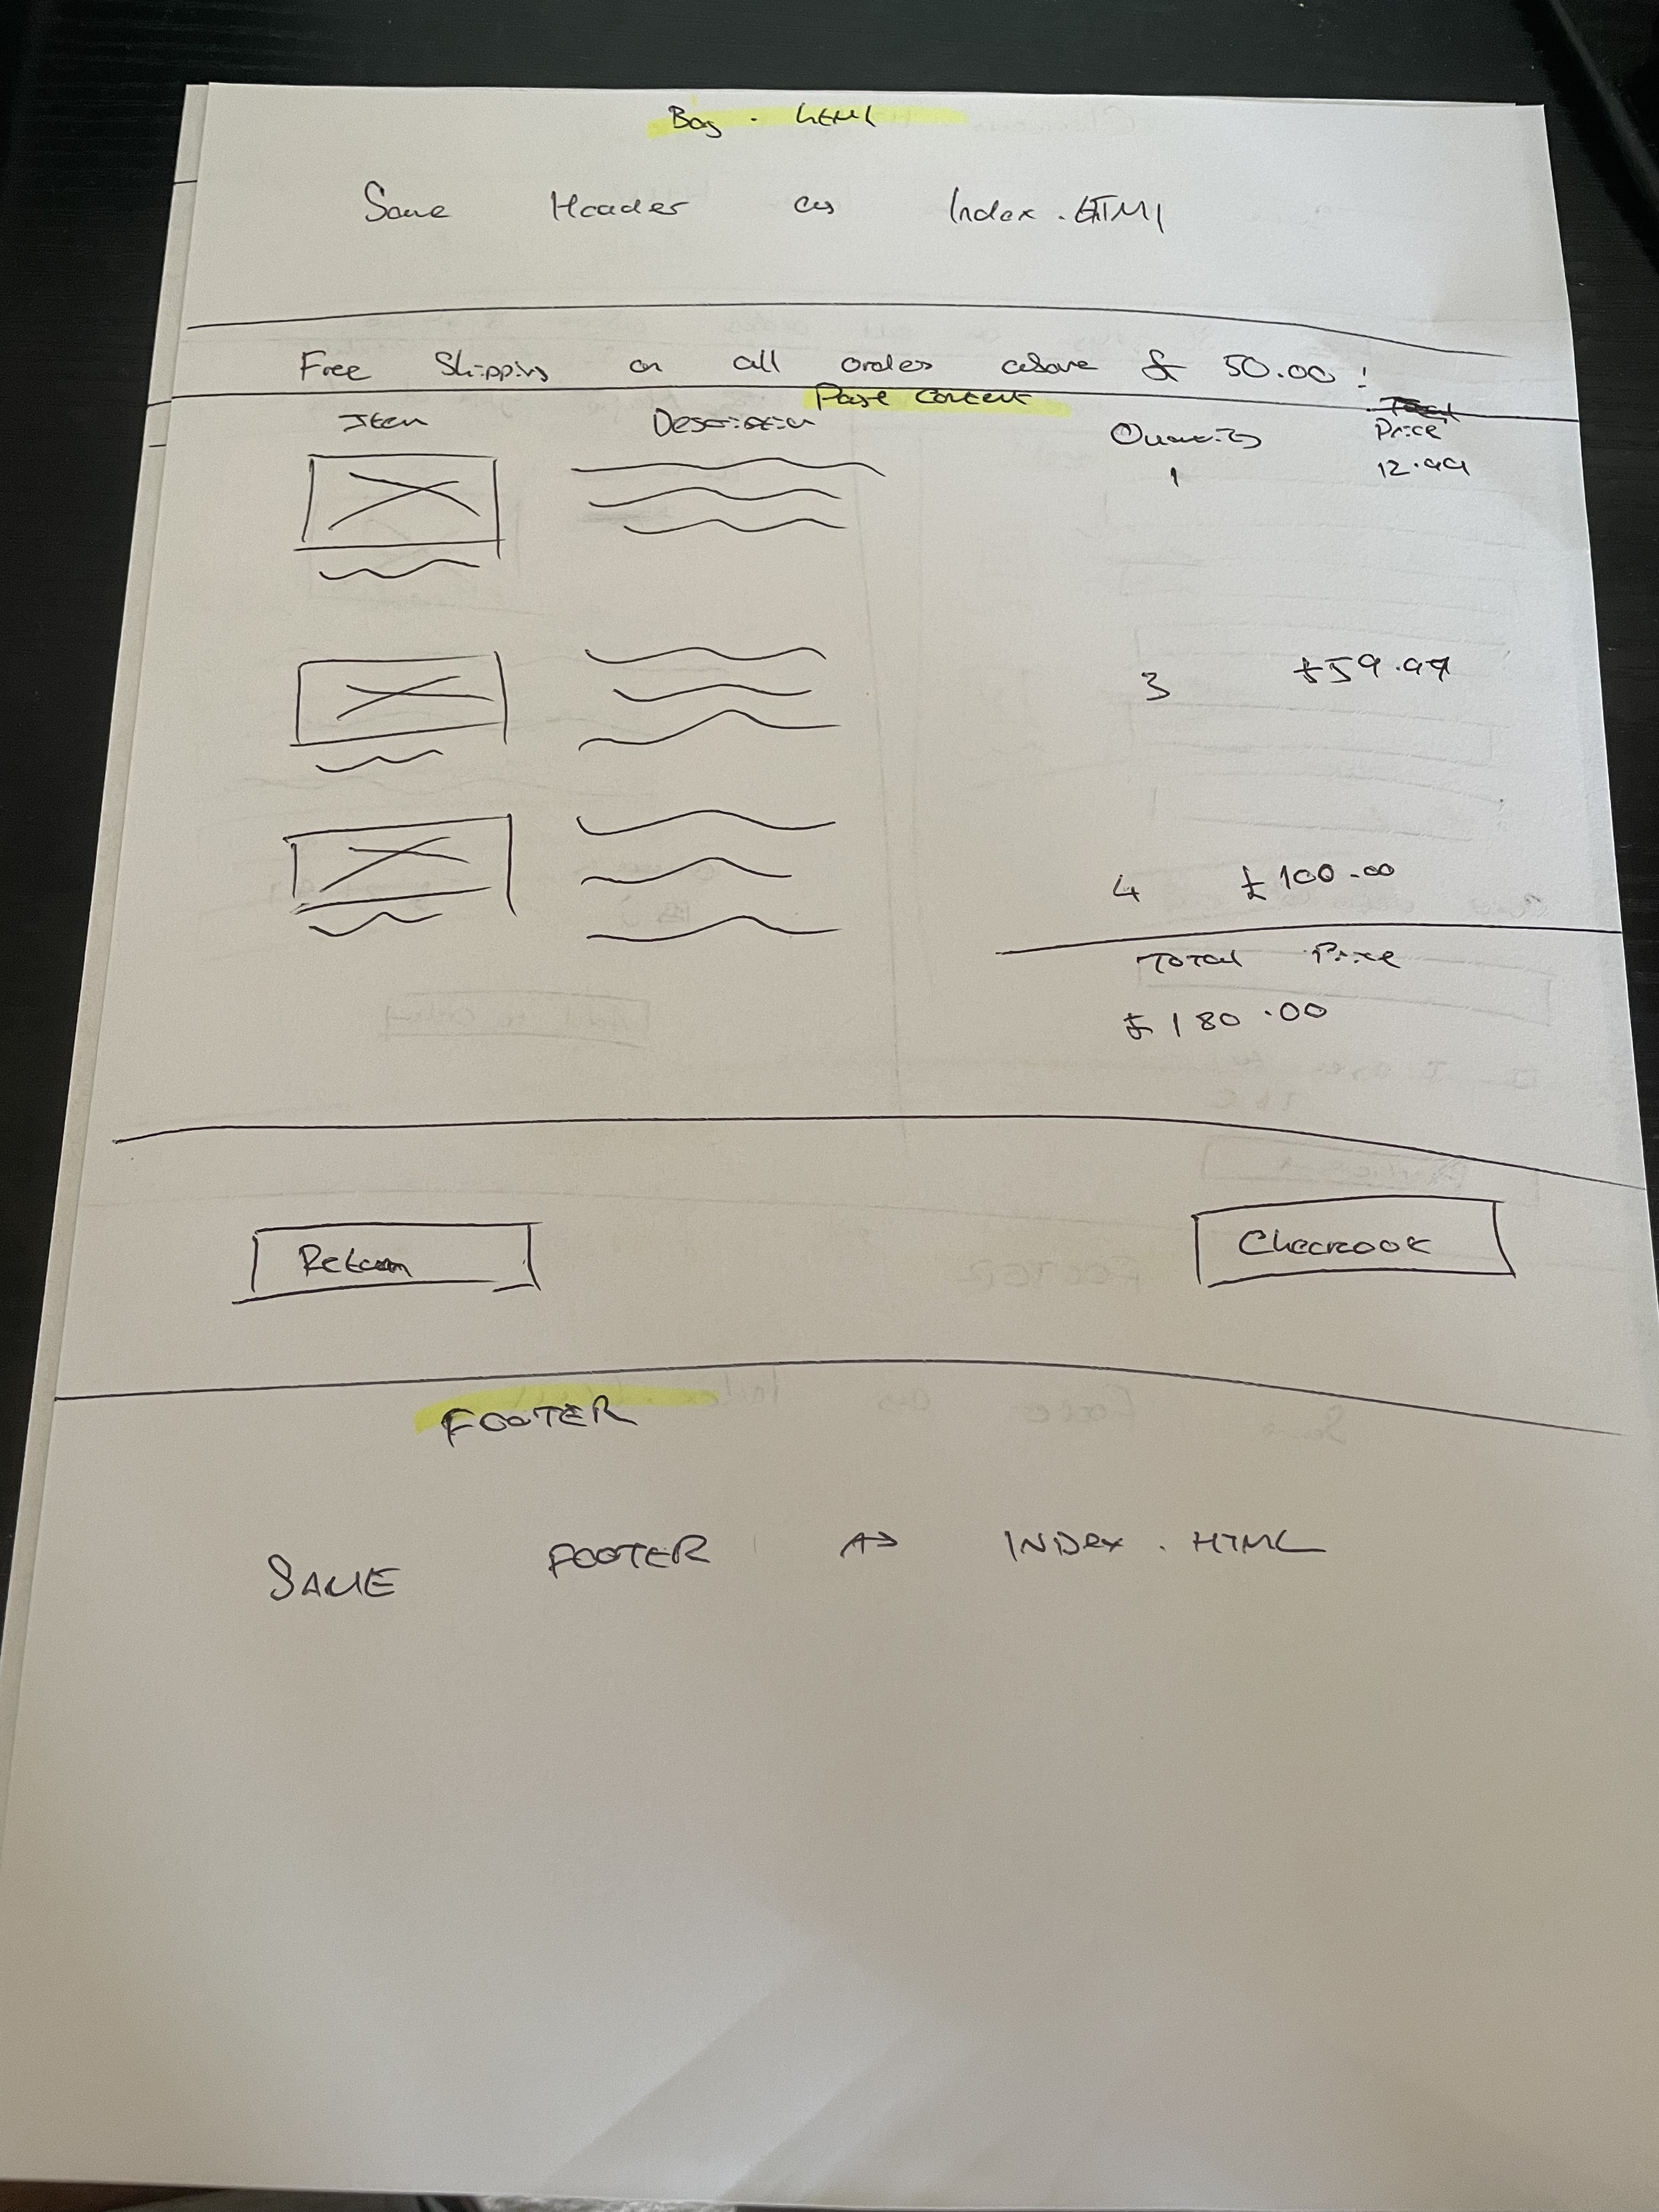 Bag . html
Same Header as Index.HTMl
Free Shipping on all orders above £ 50.00 !
Page Content
Item Description Quantity Price
1 12.99
3 £59.99
4 £100.00
Total Price
£180.00
Return Checkout
FOOTER
SAME FOOTER AS INDEX . HTML